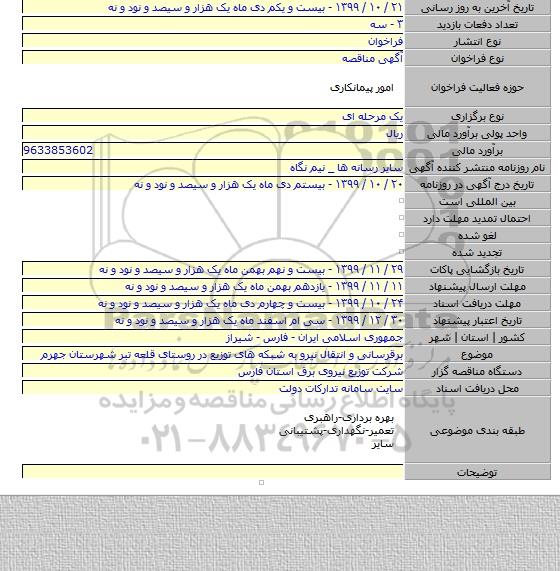 تاریخ آخرین به روز رسانی ۲۱ / ۱۰ / ۱۳۹۹ - بیست و یکم دی ماه یک هزار و سیصد و نود و نه
تعداد دفعات بازدید ۳ - سه
نوع انتشار فراخوان
نوع فراخوان آگهی مناقصه
حوزه فعالیت فراخوان امور پیمانکاری
نوع برگزاری یک مرحله ای
واحد پولی برآورد مالی ریال
برآورد مالی 9633853602
نام روزنامه منتشر کننده آگهی سایر رسانه ها _ نیم نگاه
تاریخ درج آگهی در روزنامه ۲۰ / ۱۰ / ۱۳۹۹ - بیستم دی ماه یک هزار و سیصد و نود و نه
بین المللی است
احتمال تمدید مهلت دارد
لغو شده
تجدید شده
تاریخ بازگشایی پاکات ۲۹ / ۱۱ / ۱۳۹۹ - بیست و نهم بهمن ماه یک هزار و سیصد و نود و نه
مهلت ارسال پیشنهاد ۱۱ / ۱۱ / ۱۳۹۹ - یازدهم بهمن ماه یک هزار و سیصد و نود و نه
مهلت دریافت اسناد ۲۴ / ۱۰ / ۱۳۹۹ - بیست و چهارم دی ماه یک هزار و سیصد و نود و نه
تاریخ اعتبار پیشنهاد ۳۰ / ۱۲ / ۱۳۹۹ - سی ام اسفند ماه یک هزار و سیصد و نود و نه
کشور | استان | شهر جمهوری اسلامی ایران - فارس - شیراز
موضوع برقرسانی و انتقال نیرو به شبکه های توزیع در روستای قلعه تبر شهرستان جهرم
دستگاه مناقصه گزار شرکت توزیع نیروی برق استان فارس
محل دریافت اسناد سایت سامانه تدارکات دولت
پایگاه اطلاع رسانی مناقصه و مزایده
طبقه بندی موضوعی بهره برداری-راهبری
تعمیر-نگهداری-پشتیبانی
سایر
۰۲۱-۸۸۳۴۹۶۷۰-۵
توضیحات